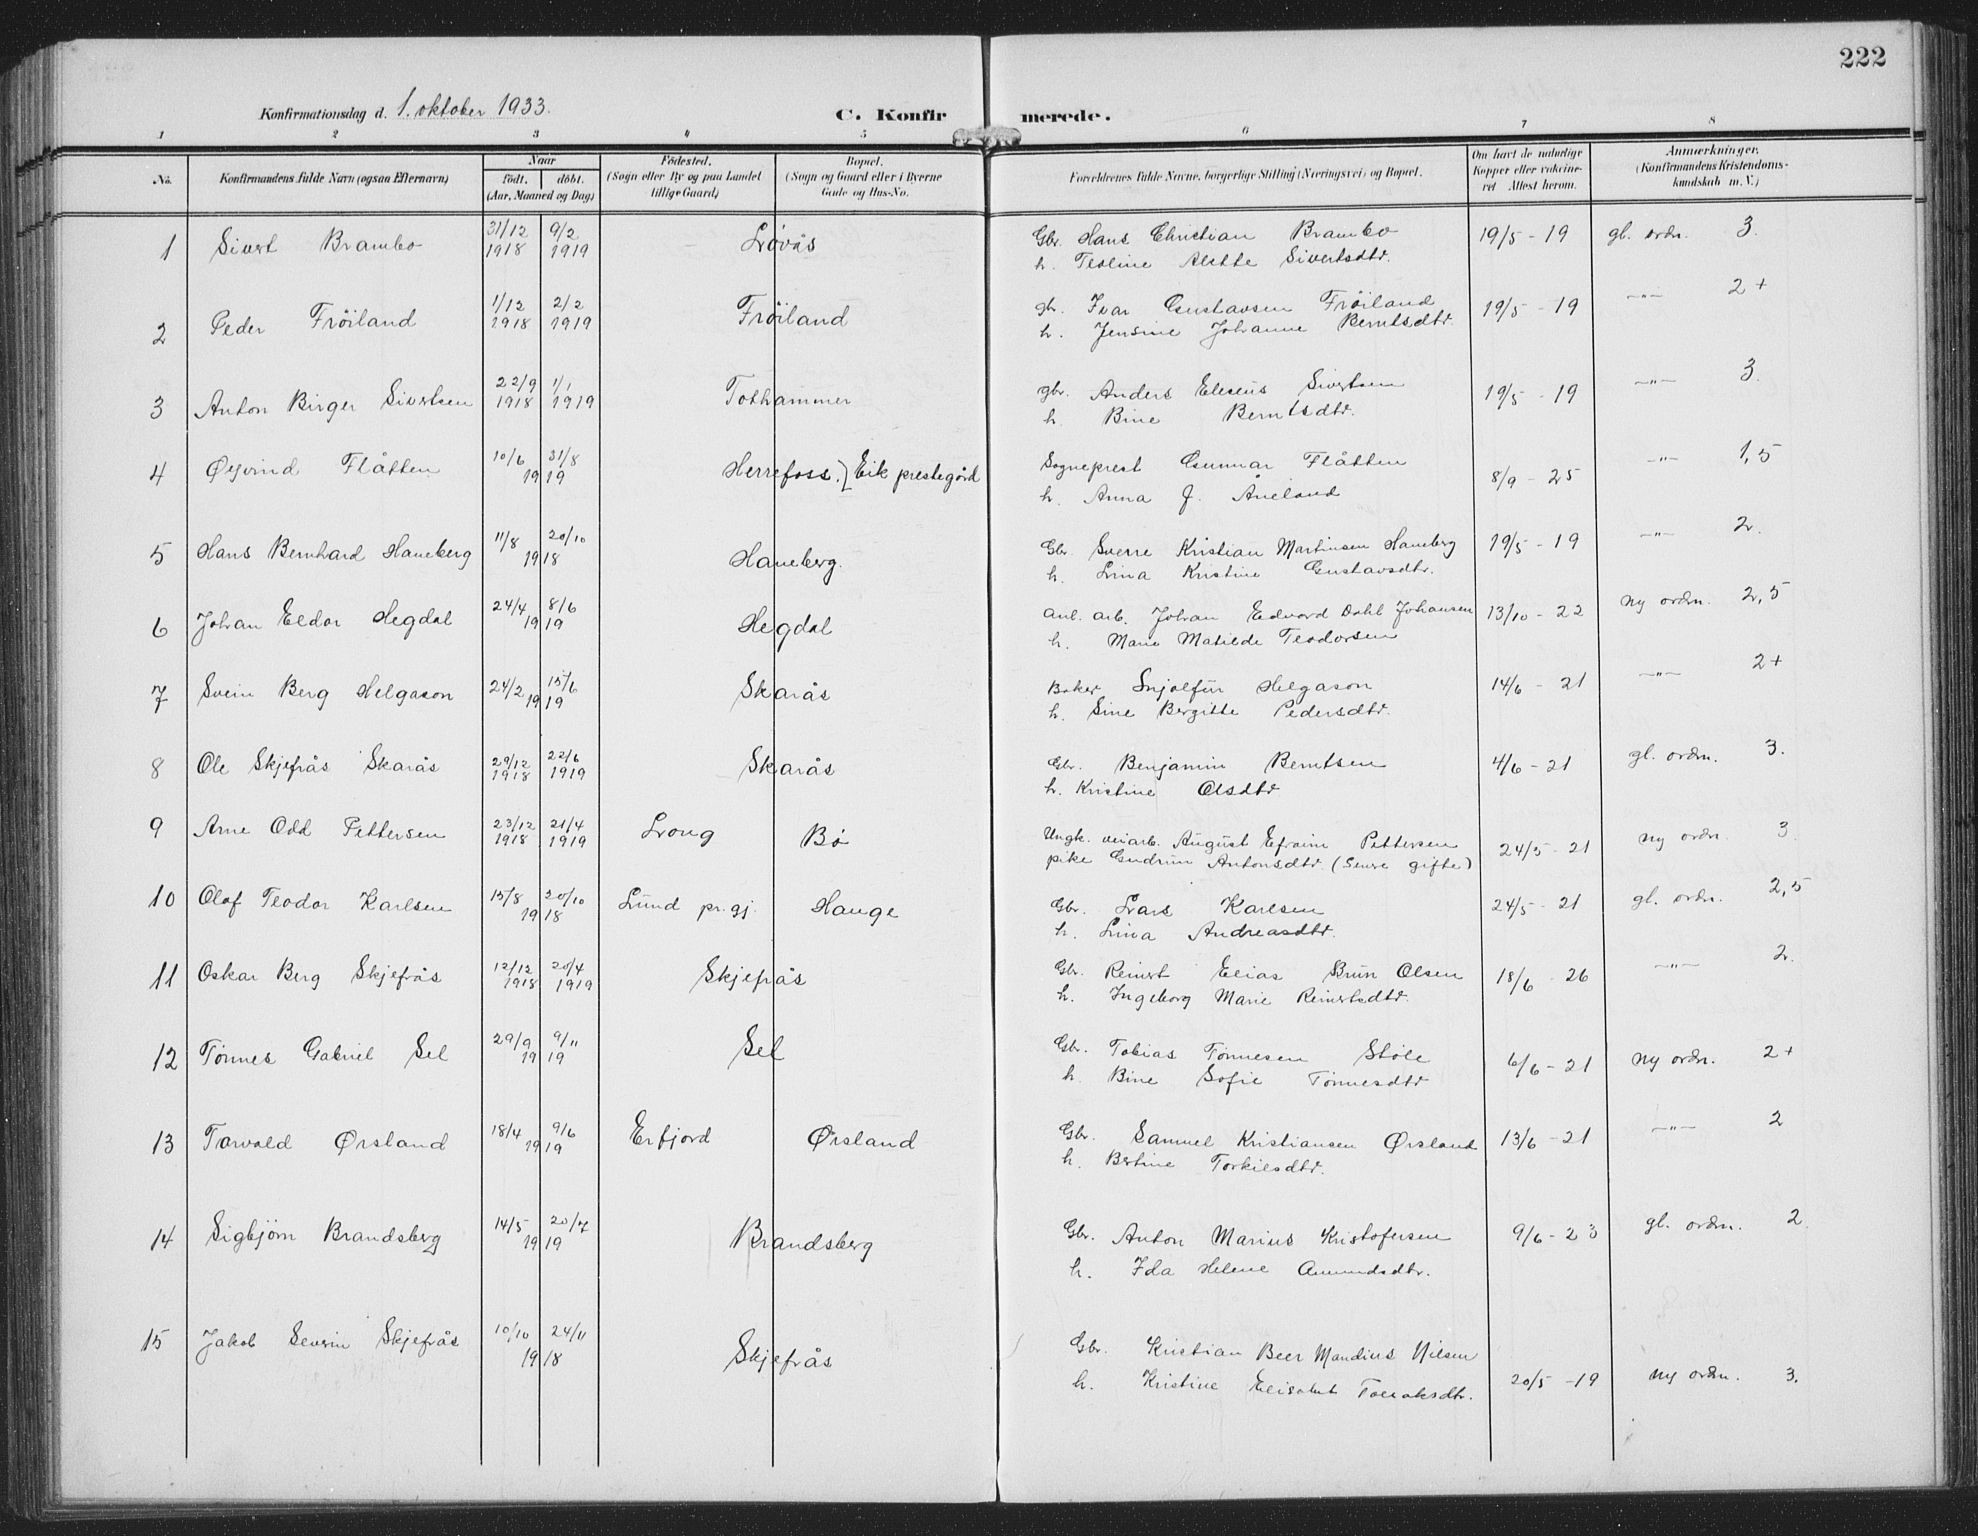 222
Konfirmationsdag d. 1. oktober 1933.
C. Konfirmerede.
1 2 3 4 5 6 7 8
No. Konfirmandens fulde Navn (ogsaa Efternavn) Naar Födested. Bopæl. Forældrenes fulde Navne, borgerlige Stilling (Næringsvei) og Bopæl. Om havt de naturlige Anmærkninger.
födt. döbt. (Sogn eller By og paa Landet (Sogn og Gaard eller i Byerne Kopper eller vakcine- (Konfirmandens Kristendoms-
(Aar, Maaned og Dag) tillige Gaard) Gade og Hus-No. ret Attest herom. kundskab m. V.)
1 Sivert Brambo 31/12 1918 9/2 1919 Løvås Gbr. Hans Christian Brambo 19/5 - 19 gl. ordn. 3.
h. Teoline Alette Sivertsdtr.
2 Peder Fröiland 1/12 1918 2/2 1919 Fröiland gbr. Ivar Gustavsen Fröiland 19/5 - 19 -"- 2+
h. Jensine Johanne Berntsdtr.
3 Anton Birger Sivertsen 22/9 1918 1/1 1919 Tothammer gbr. Anders Eleseus Sivertsen 19/5 - 19 -"- 3.
h. Bine Berntsdtr.
4 Øyvind Flåtten 10/6 31/8 1919 Herrefoss. Eik prestegård Sogneprest Gunnar Flåtten 8/9 - 25 -"- 1,5
h. Anna J. Åneland
5 Hans Bernhard Haneberg 11/8 20/10 1918 Haneberg. Gbr. Sverre Kristian Martinsen Haneberg 19/5 - 19 -"- 2.
h. Lina Kristine Gustavsdtr.
6 Johan Eldar Hegdal 24/4 8/6 1919 Hegdal anl. arb. Johan Edvard Dahl Johansen 13/10 - 22 ny ordn. 2,5
h. Marie Matilde Teodorsen
7 Svein Berg Helgason 24/2 15/6 1919 Skarås Baker Snjolfur Helgason 14/6 - 21 -"- 2+
h. Sine Bergitte Pedersdtr.
8 Ole Skjefrås Skarås 29/12 1918 22/6 1919 Skarås Gbr. Benjamin Berntsen 4/6 - 21 gl. ordn. 3.
h. Kristine Olsdtr
9 Arne Odd Pettersen 23/12 1918 21/4 1919 Lrong Bö Ungk. veiarb. August Efraim Pettersen 24/5 - 21 ny ordn. 3.
pike Gudrun Antonsdtr. (Senere gifte)
10 Olaf Teodor Karlsen 15/8 20/10 1918 Lund pr.gj. Hauge Gbr. Lars Karlsen 24/5 - 21 gl. ordn. 2,5
h. Lina Andreasdtr.
11 Oskar Berg Skjefrås 12/12 1918 20/4 1919 Skjefrås Gbr. Reinert Elias Brun Olsen 18/6 - 26 -"- 2.
h. Ingeborg Marie Reinertsdtr.
12 Tönnes Gabriel Sel 29/9 9/11 1919 Sel Gbr. Tobias Tönnesen Støle 6/6 - 21 ny ordn. 2+
h. Bine Sofie Tönnesdtr
13 Torvald Ørsland 18/4 9/6 1919 Erfjord Ørsland Gbr. Samuel Kristiansen Ørsland 13/6 - 21 -"- 2
h. Bertine Torkilsdtr.
14 Sigbjörn Brandsberg 14/5 20/7 1919 Brandsberg Gbr. Anton Marius Kristofersen 9/6 - 23 gl. ordn. 2.
h. Ida Helene Amundsdtr.
15 Jakob Severin Skjefrås 10/10 24/11 1918 Skjefrås Gbr. Kristian Beer Mandius Nilsen
h. Kristine Elisabet Tollaksdtr. 20/5 - 19 ny ordn. 3.